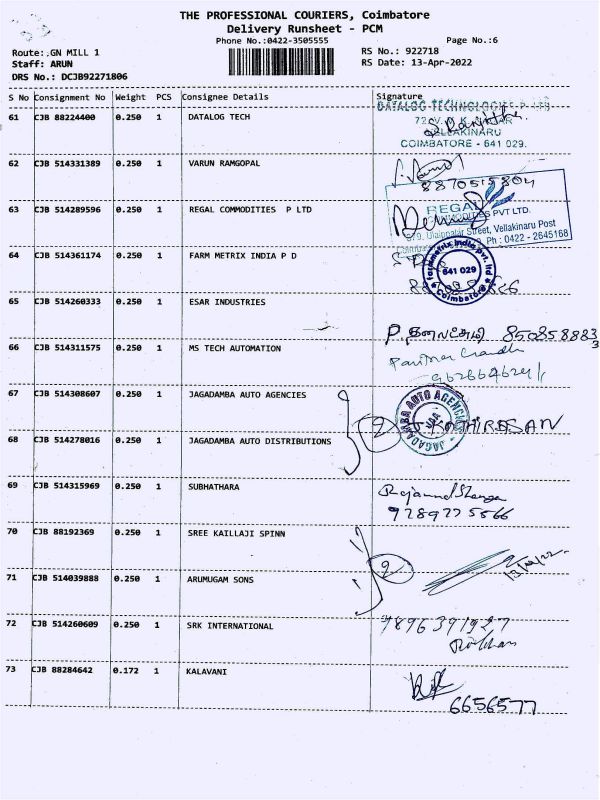 THE PROFESSIONAL COURIERS, Coimbatore
Delivery Runsheet - PCM
Phone No.:0422-3505555
Page No.:6
Route: GN MILL 1
RS No.: 922718
Staff: ARUN
RS Date: 13-Apr-2022
DRS No.: DCJB92271806
S No Consignment No Weight PCS Consignee Details Signature
61 CJB 88224400 0.250 1 DATALOG TECH
DATALOG TECHNOLOGIES P LTD
VELLAKINARU
COIMBATORE - 641 029.
62 CJB 514331389 0.250 1 VARUN RAMGOPAL
8870515804
63 CJB 514289596 0.250 1 REGAL COMMODITIES P LTD
REGAL
COMMODITIES PVT LTD.
Street, Vellakinaru Post
Ph : 0422 - 2645168
64 CJB 514361174 0.250 1 FARM METRIX INDIA P D
farmmetrix india pvt. ltd
641 029
Coimbatore
65 CJB 514260333 0.250 1 ESAR INDUSTRIES
8508588833
66 CJB 514311575 0.250 1 MS TECH AUTOMATION
67 CJB 514308607 0.250 1 JAGADAMBA AUTO AGENCIES
JAGADAMBA AUTO AGENCIES
JAA
2
KATHIRESAN
68 CJB 514278016 0.250 1 JAGADAMBA AUTO DISTRIBUTIONS
69 CJB 514315969 0.250 1 SUBHATHARA
9789775566
70 CJB 88192369 0.250 1 SREE KAILLAJI SPINN
2
71 CJB 514039888 0.250 1 ARUMUGAM SONS
72 CJB 514260609 0.250 1 SRK INTERNATIONAL
9896391927
73 CJB 88284642 0.172 1 KALAVANI
6656577